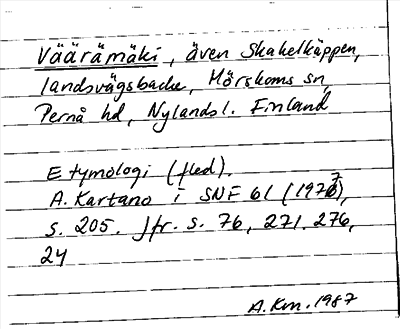 Väärämäki, även Skakelkäppen,
landsvägsbacke, Mörskoms sn,
Pernå hd, Nylands l. Finland
Etymologi (fled).
A. Kartano i SNF 61 (1977),
s. 205. Jfr. s. 76, 271, 276,
24
A. Km. 1987